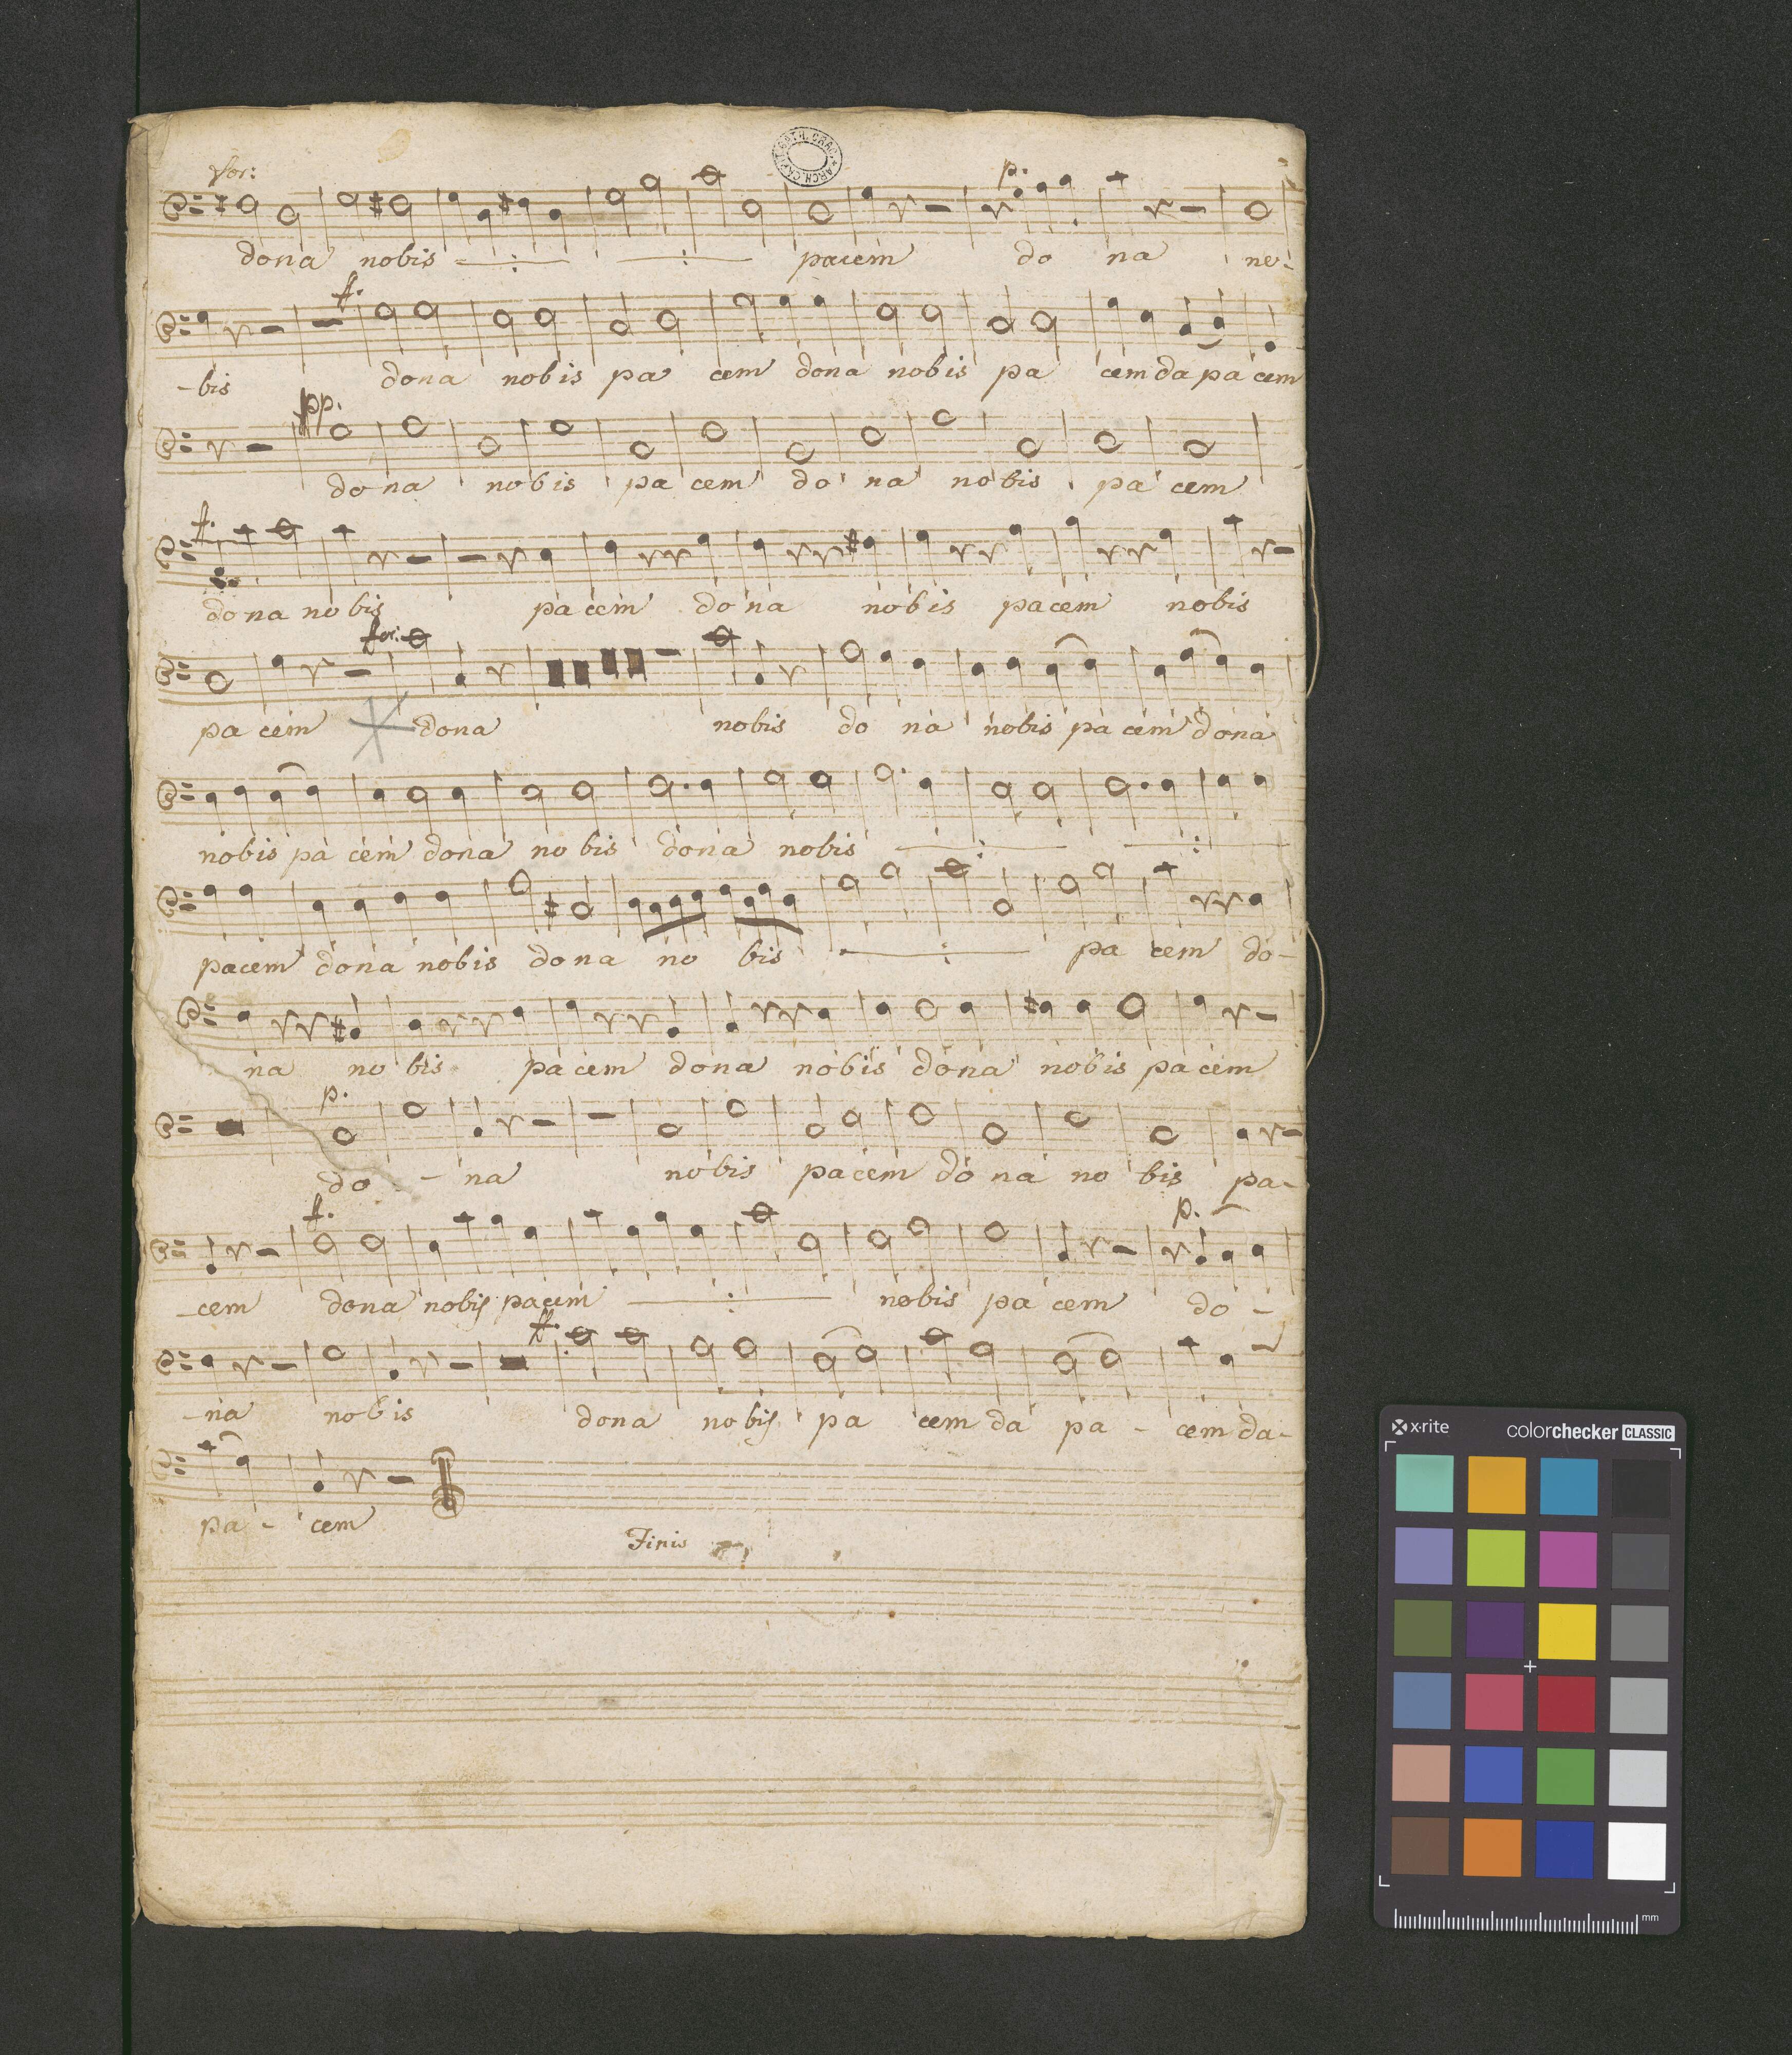 for:
ARCH. CAPIT. CATH. CRAC.
p.
dona nobis pacem do na no-
f.
-bis dona nobis pa cem dona nobis pa cem da pa cem
pp.
dona nobis pa cem do na nobis pa cem
f.
dona nobis pacem dona nobis pacem nobis
for:
pa cem dona nobis do na nobis pa cem dona
nobis pa cem dona nobis dona nobis
pacem dona nobis dona no bis pa cem do-
na no bis pacem dona nobis dona nobis pacem
p.
do - na nobis pacem do na no bis pa-
f. p.
-cem dona nobis pacem nobis pa cem do -
f.
-na nobis dona nobis pa cem da pa - cem da-
pa - cem
Finis
x·rite colorchecker CLASSIC
mm